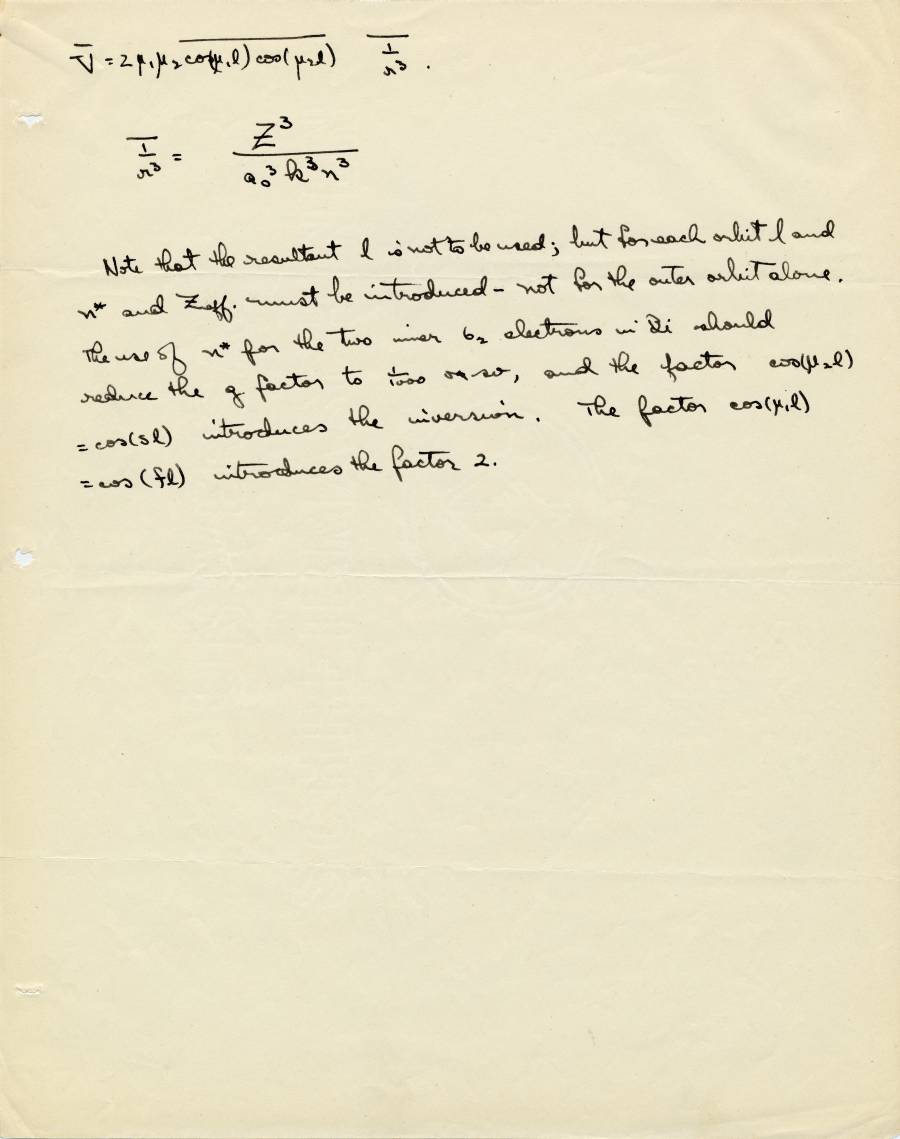 V̅ = 2μ₁μ₂ c̅o̅s̅(̅μ̅₁̅l̅)̅ ̅c̅o̅s̅(̅μ̅₂̅l̅)̅ \overline{1/r³}.
\overline{1/r³} = Z³ / a₀³k³n³
Note that the resultant l is not to be used; but for each orbit l and
n* and Zeff. must be introduced – not for the outer orbit alone.
The use of n* for the two inner 6₂ electrons in Bi should
reduce the g factor to 1/1000 or so, and the factor cos(μ₂l)
= cos(sl) introduces the inversion. The factor cos(μ₁l)
= cos(fl) introduces the factor 2.